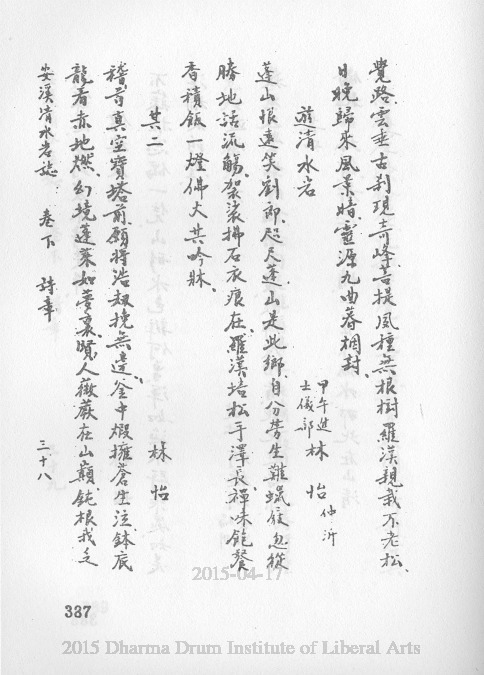 覺路雲垂古刹現奇峰菩提風種無根樹羅漢親栽不老松、
日晚歸來風景暗靈源九曲暮相封、
遊清水岩
甲午進士儀部 林 怡 仲沂
蓬山恨遠笑劉郎、咫尺蓬山是此鄉、自分勞生難蠟屐忽從
勝地話流觴、袈裟拂石衣痕在、羅漢培松手澤長、禪味飽餐
香積飯一燈佛火共吟牀、
其二 林 怡
稽首真空寶塔前、願將浩劫挽無邊、釜中煅擁蒼生泣、鉢底
龍看赤地燃、幻境蓬萊如夢裏、賢人薇蕨在山巔、鈍根我乏
安溪清水岩誌 卷下 詩章 三十八
2015-04-17
337
2015 Dharma Drum Institute of Liberal Arts